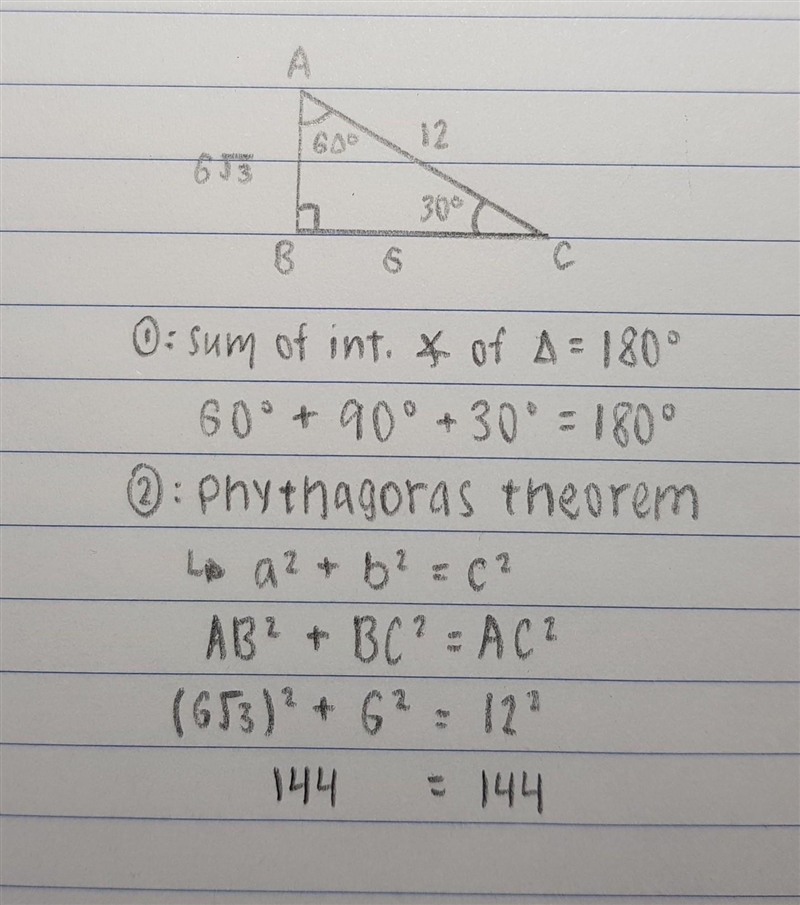 A
60°
12
6√3
30°
B
6
C
①: sum of int. ∡ of Δ = 180°
60° + 90° + 30° = 180°
②: phythagoras theorem
↳ a² + b² = c²
AB² + BC² = AC²
(6√3)² + 6² = 12²
144 = 144